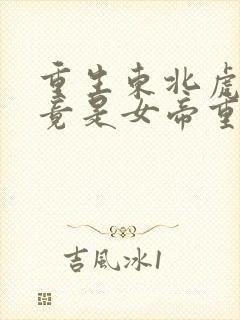 重生東北虎
竟是女帝重
吉風冰1